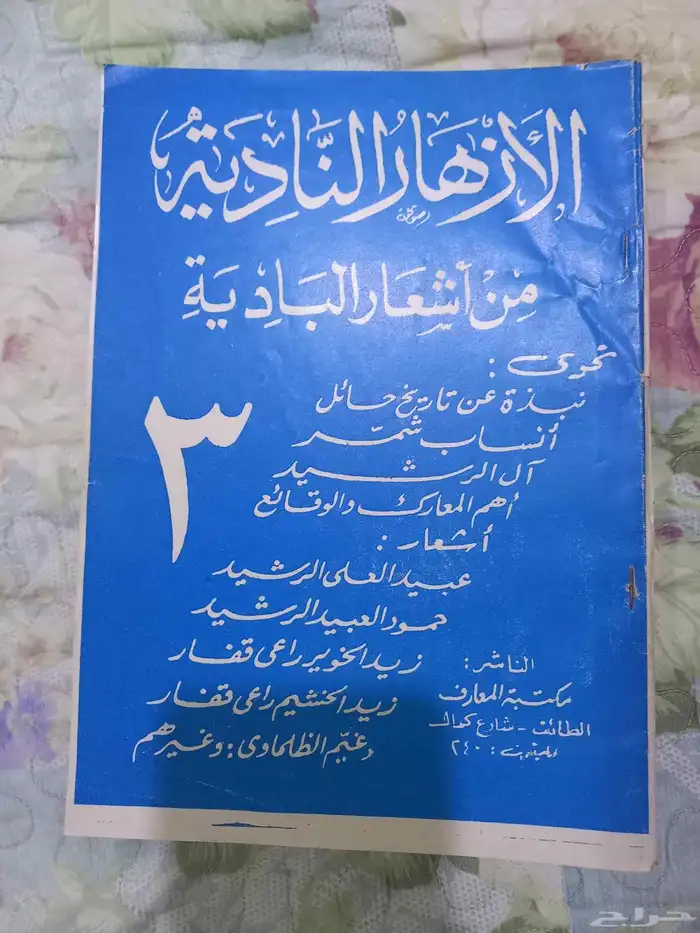 الأَزهَارُ النَّادِيَةُ
مِنْ أَشْعَارِ البَادِيَةِ
تحوى :
نبذة عن تاريخ حائل
أنساب شمّر
آل الرشيد
أهم المعارك والوقائع
٣
أشعار :
عبيد العلى الرشيد
حمود العبيد الرشيد
زيد الخوير راعى قفار
زيد الخشيم راعى قفار
دغيّم الظلماوى : وغيرهم
الناشر :
مكتبة المعارف
الطائف - شارع كمال
٢٤٠ :
حراج